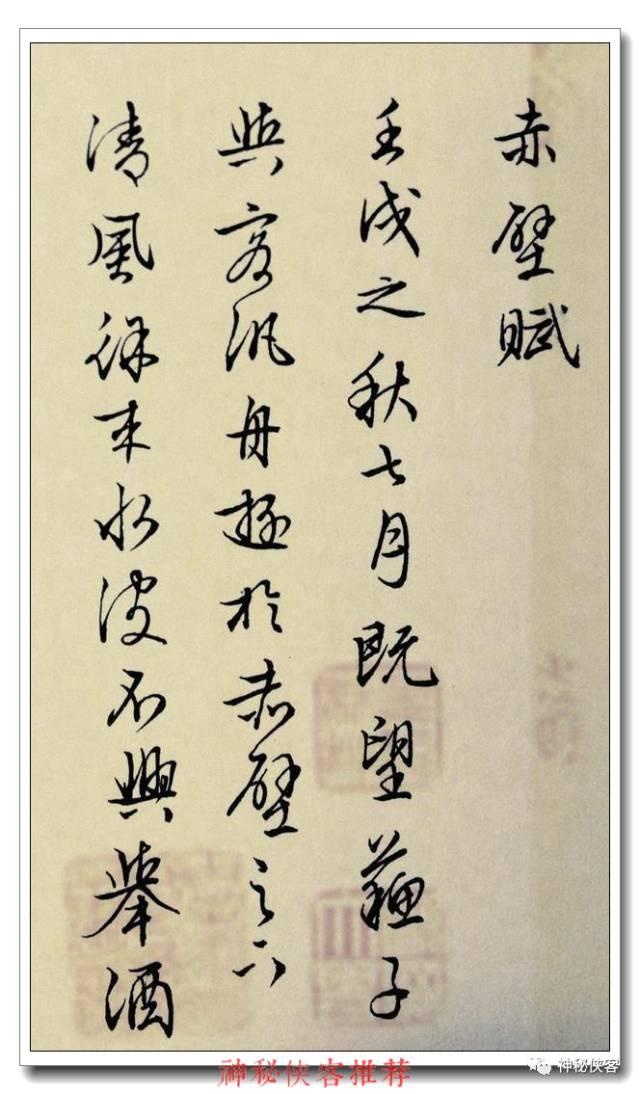 赤壁賦
壬戌之秋七月既望蘇子
與客汎舟遊於赤壁之下
清風徐來水波不興舉酒
神秘侠客推荐
神秘侠客